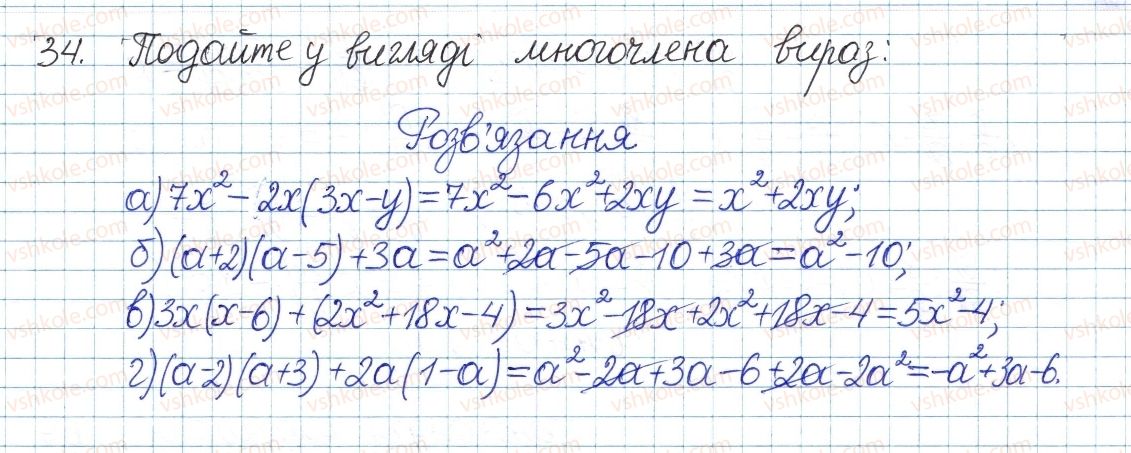 34. Подайте у вигляді многочлена вираз:
Розв'язання
а) 7x² - 2x(3x-y) = 7x² - 6x² + 2xy = x² + 2xy;
б) (a+2)(a-5) + 3a = a² + 2a - 5a - 10 + 3a = a² - 10;
в) 3x(x-6) + (2x² + 18x - 4) = 3x² - 18x + 2x² + 18x - 4 = 5x² - 4;
г) (a-2)(a+3) + 2a(1-a) = a² - 2a + 3a - 6 + 2a - 2a² = -a² + 3a - 6.